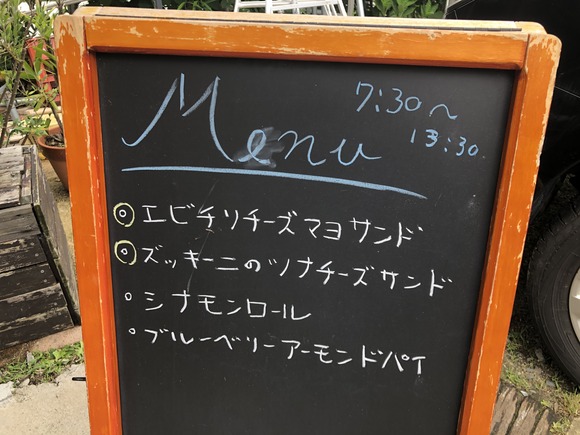 Menu
7:30〜
13:30.
◎エビチリチーズマヨサンド
◎ズッキーニのツナチーズサンド
°シナモンロール
°ブルーベリーアーモンドパイ